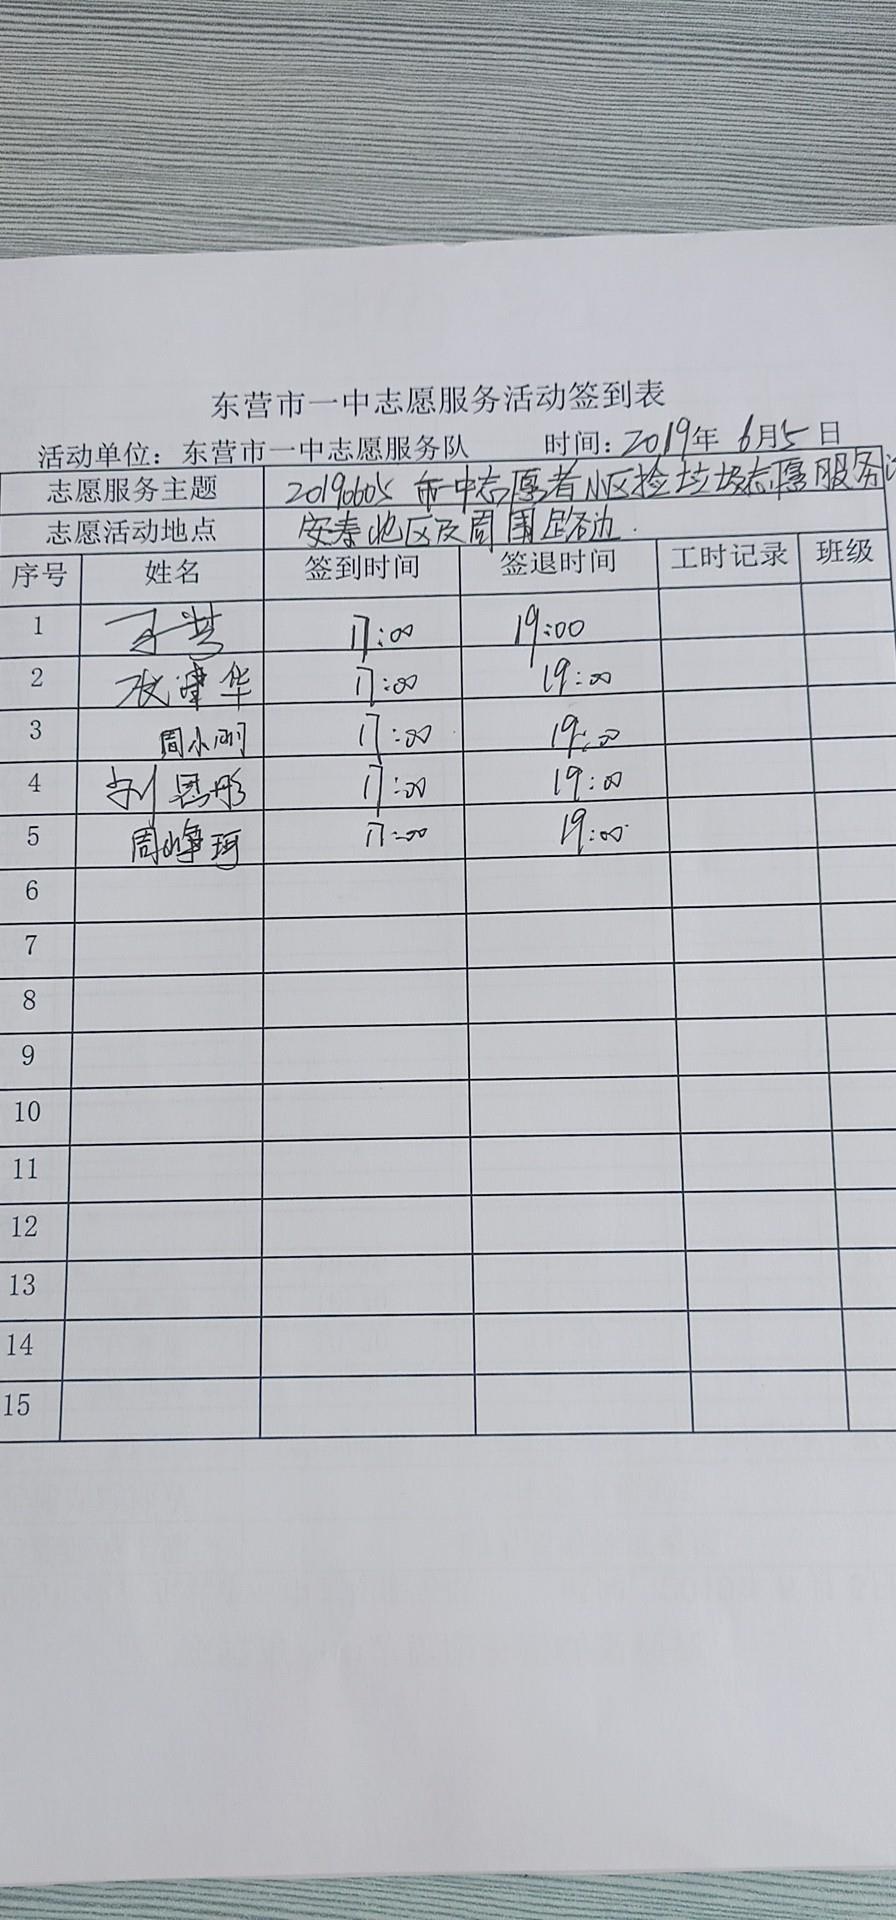 东营市一中志愿服务活动签到表
活动单位：东营市一中志愿服务队 时间：2019年 6月5日
志愿服务主题 20190605 市一中志愿者小区捡垃圾志愿服务
志愿活动地点 安泰地区及周围路边.
序号 姓名 签到时间 签退时间 工时记录 班级
1 17:00 19:00
2 张 华 17:00 19:00
3 周小刚 17:00 19:00
4 刘恩彤 17:00 19:00
5 周峥珂 17:00 19:00
6
7
8
9
10
11
12
13
14
15